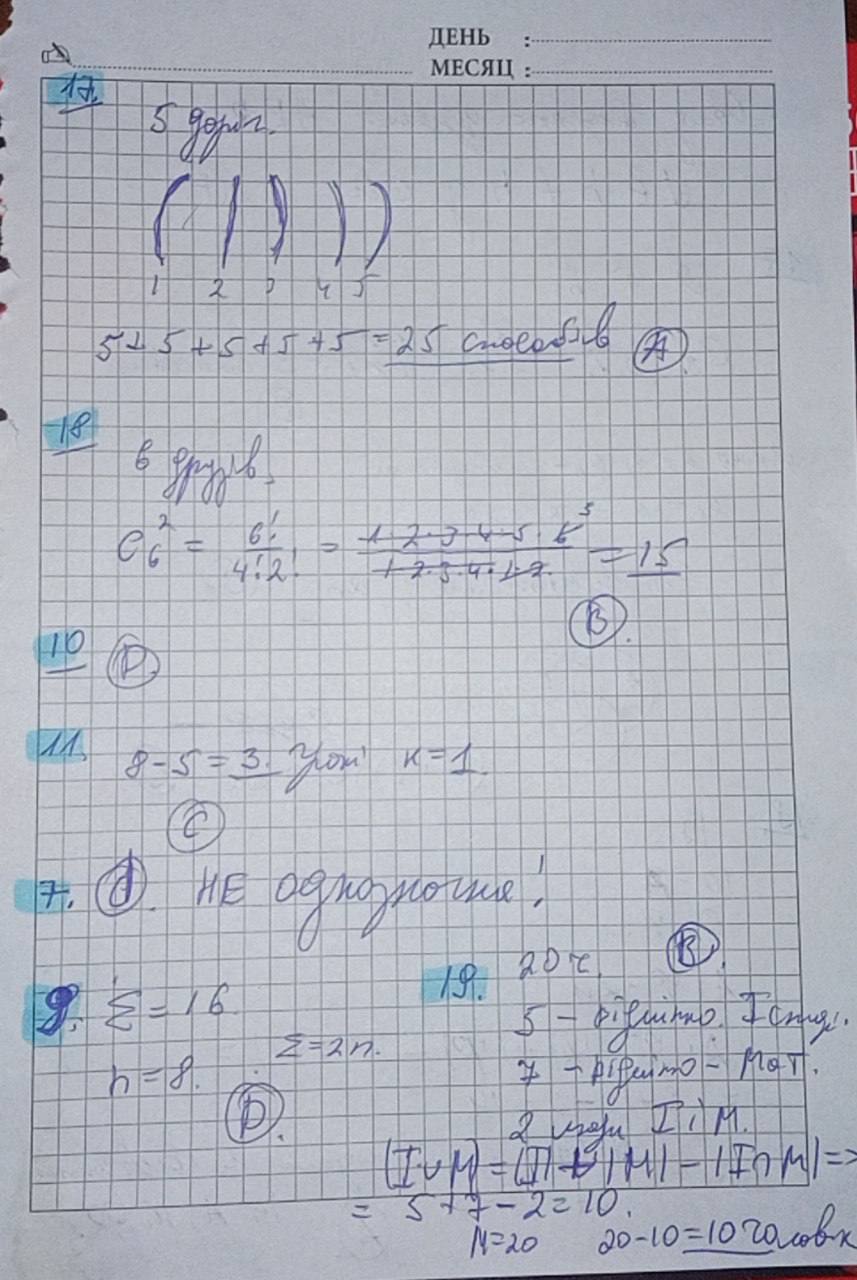 ДЕНЬ :
МЕСЯЦ :
17.
5 доріг.
1 2 3 4 5
5+5+5+5+5=25 способів A
18
6 друзів.
C₆² = 6!/4!2! = 1·2·3·4·5·6 3/1·2·3·4·1·2 = 15
B.
10 D
11. 8-5=3. Тоді к=1.
C
7. d. НЕ однозначна!
9. Σ=16
Σ=2n.
n=8.
D.
19. 20 ч. B.
5 - відмінно Істор.
7 - відмінно - Мат.
2 І і М.
|I∪M|=|I|+|M|-|I∩M|=>
= 5+7-2=10.
N=20 20-10=10 чоловік